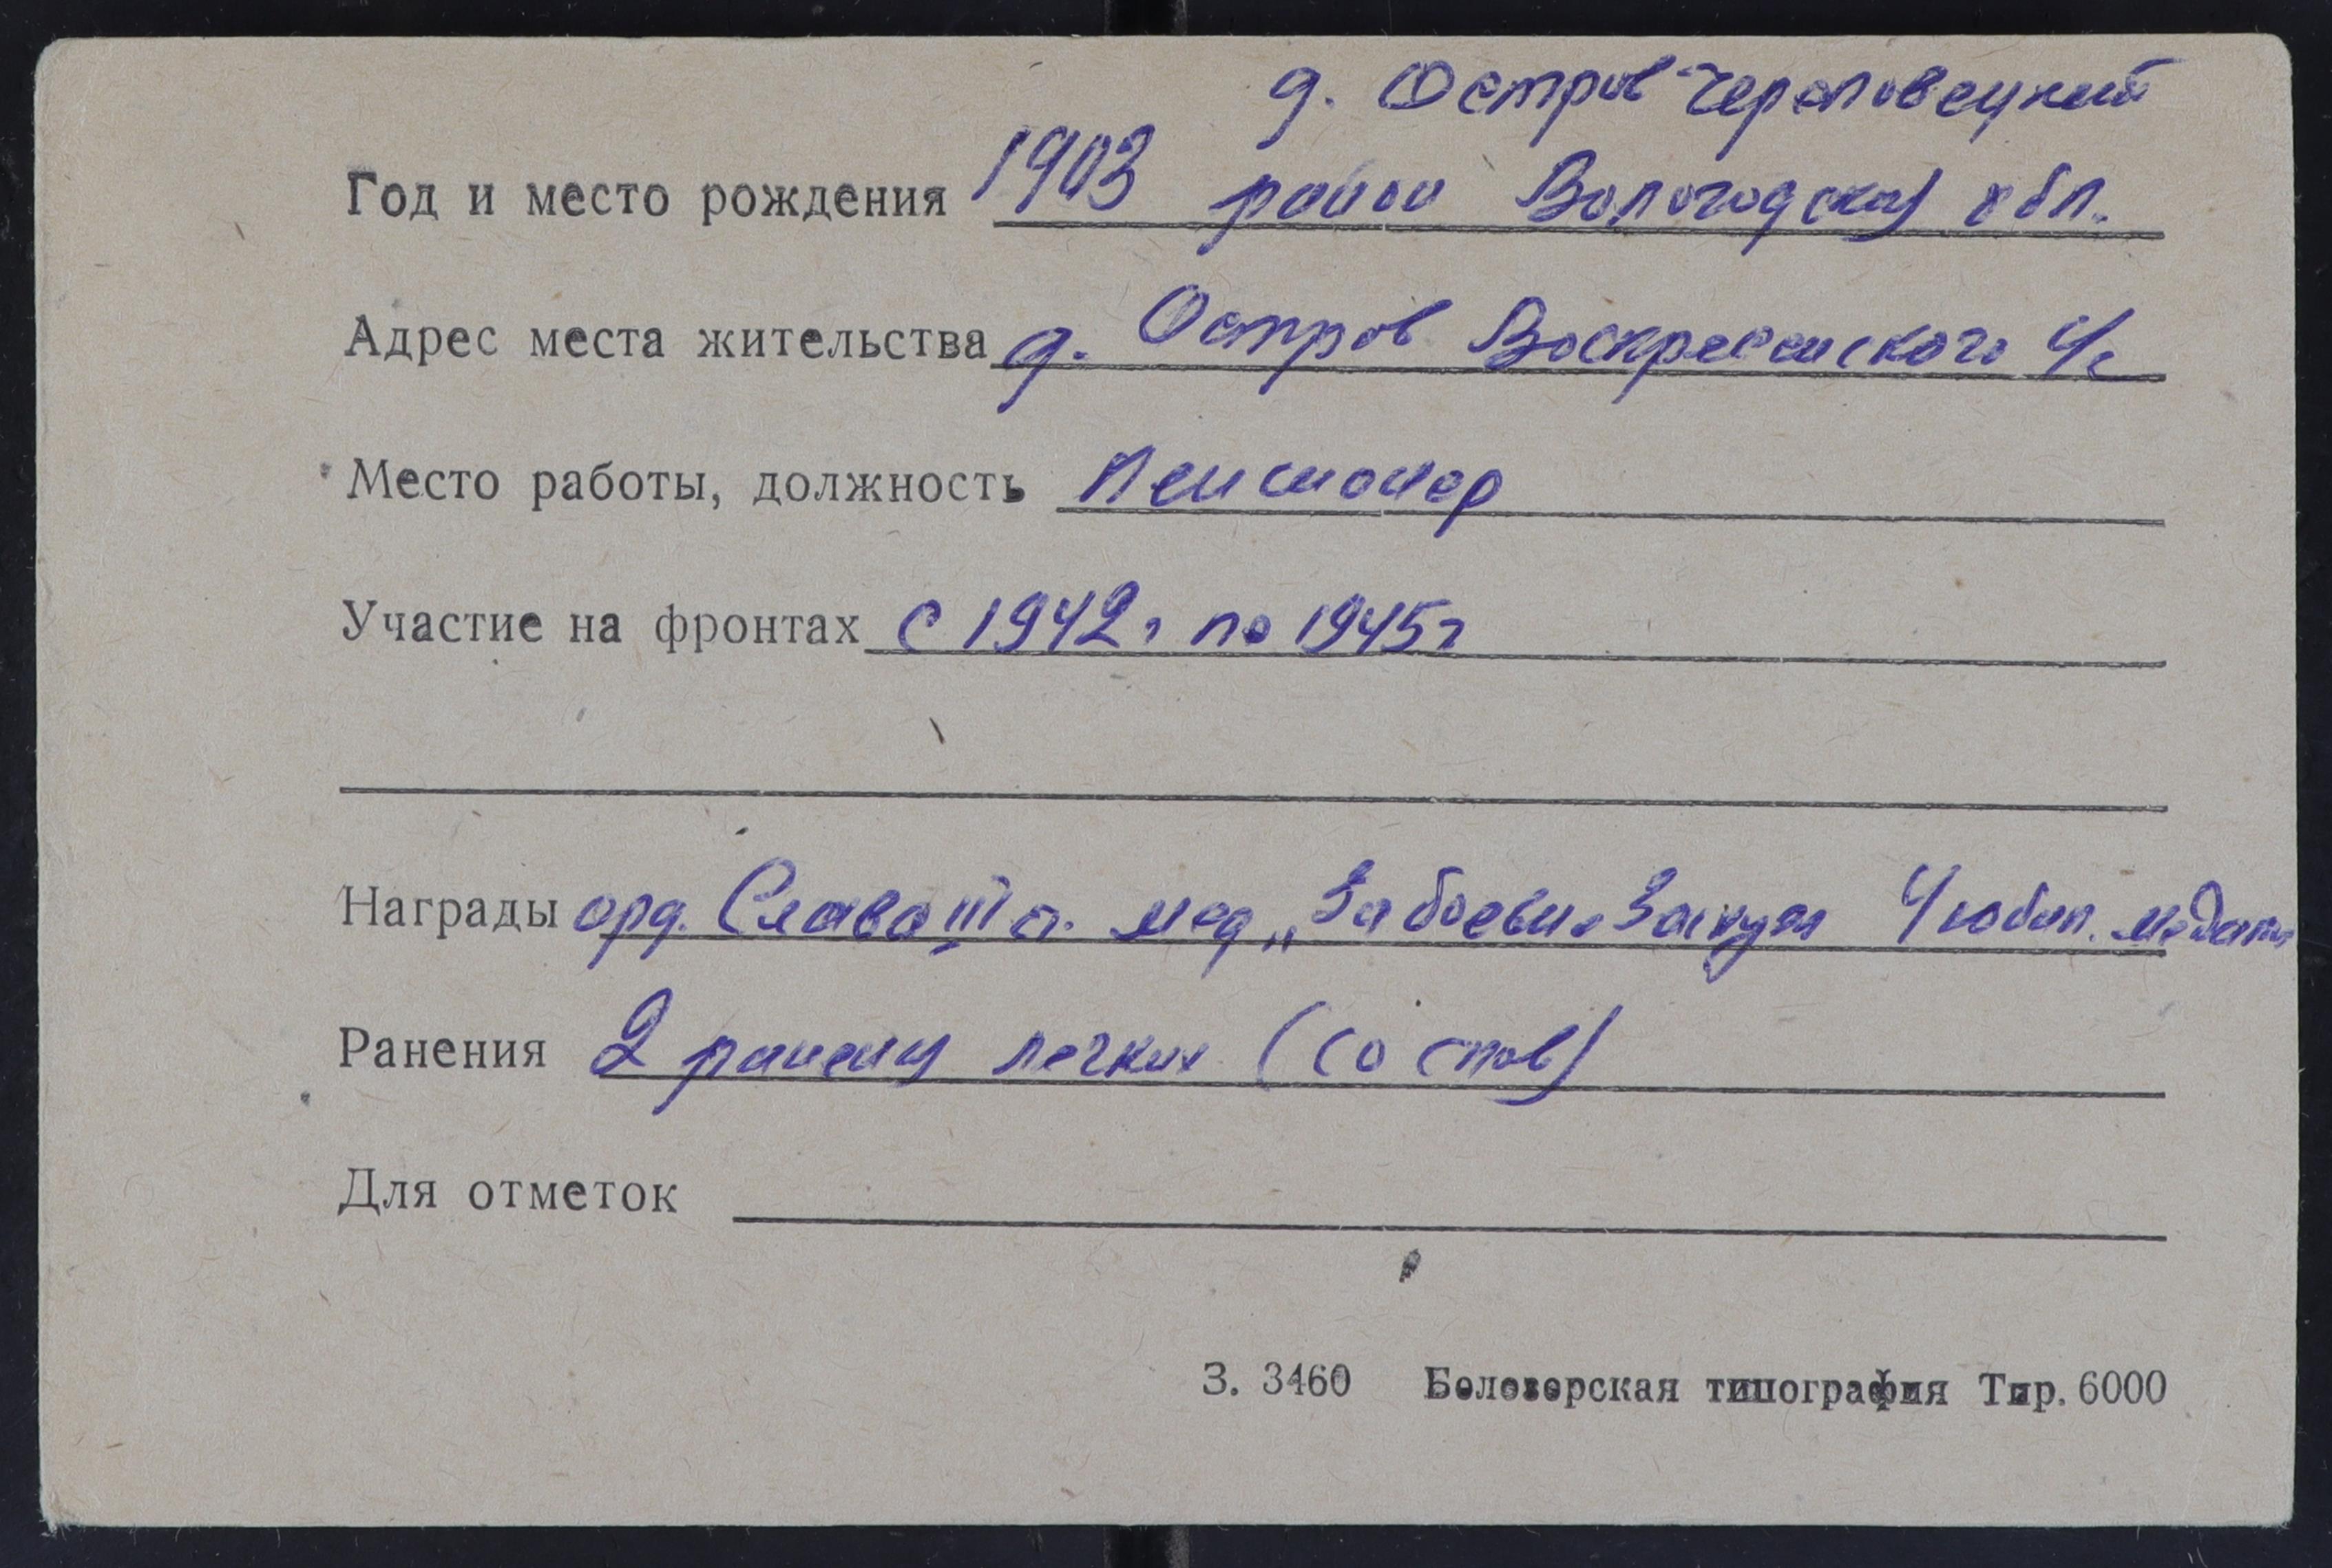 д. Остров Череповецкий
Год и место рождения 1903 район Вологодская обл.
Адрес места жительства д. Остров Воскресенского с/с
Место работы, должность пенсионер
Участие на фронтах с 1942г по 1945г
Награды орд. Слава III ст. мед „За боевые заслуги 4 юбил. медали
Ранения 2 ранения легких (со слов)
Для отметок
З. 3460 Белозерская типография Тир. 6000